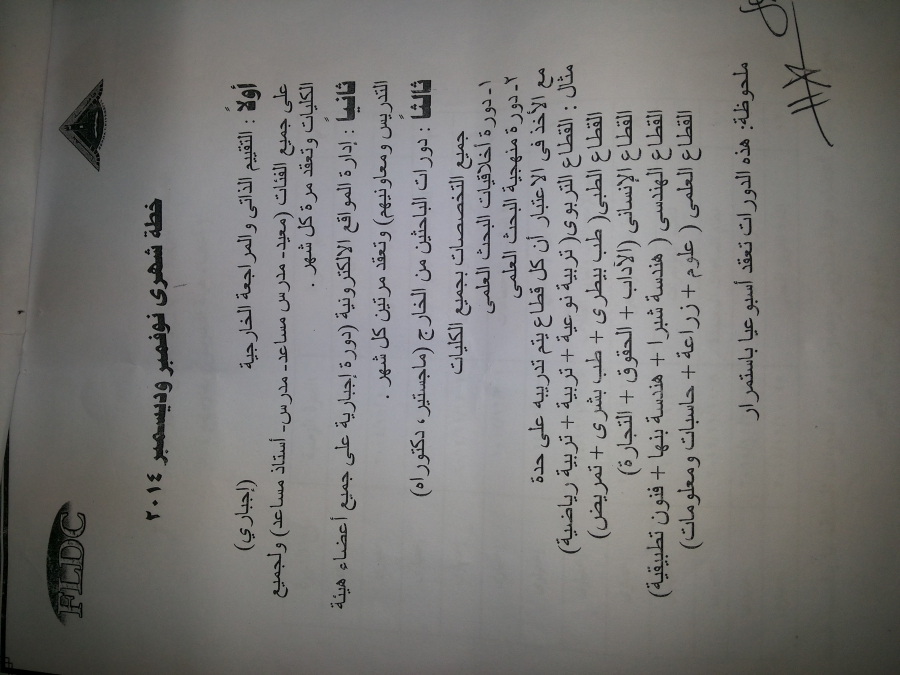 FLDC
خطة شهرى نوفمبر وديسمبر ٢٠١٤
أولاً : التقييم الذاتى والمراجعة الخارجية (إجباري)
على جميع الفئات (معيد- مدرس مساعد- مدرس- أستاذ مساعد) ولجميع
الكليات وتعقد مرة كل شهر .
ثانياً : إدارة المواقع الالكترونية (دورة إجبارية على جميع أعضاء هيئة
التدريس ومعاونيهم) وتعقد مرتين كل شهر .
ثالثاً : دورات الباحثين من الخارج (ماجستير ، دكتوراه)
جميع التخصصات بجميع الكليات
١- دورة أخلاقيات البحث العلمى
٢- دورة منهجية البحث العلمى
مع الأخذ فى الاعتبار أن كل قطاع يتم تدريبه على حدة
مثال : القطاع التربوى( تربية نوعية + تربية + تربية رياضية)
القطاع الطبى( طب بيطرى + طب بشرى + تمريض)
القطاع الإنسانى (الآداب + الحقوق + التجارة)
القطاع الهندسى ( هندسة شبرا + هندسة بنها + فنون تطبيقية)
القطاع العلمى ( علوم + زراعة + حاسبات ومعلومات)
ملحوظة: هذه الدورات تعقد أسبوعيا باستمرار